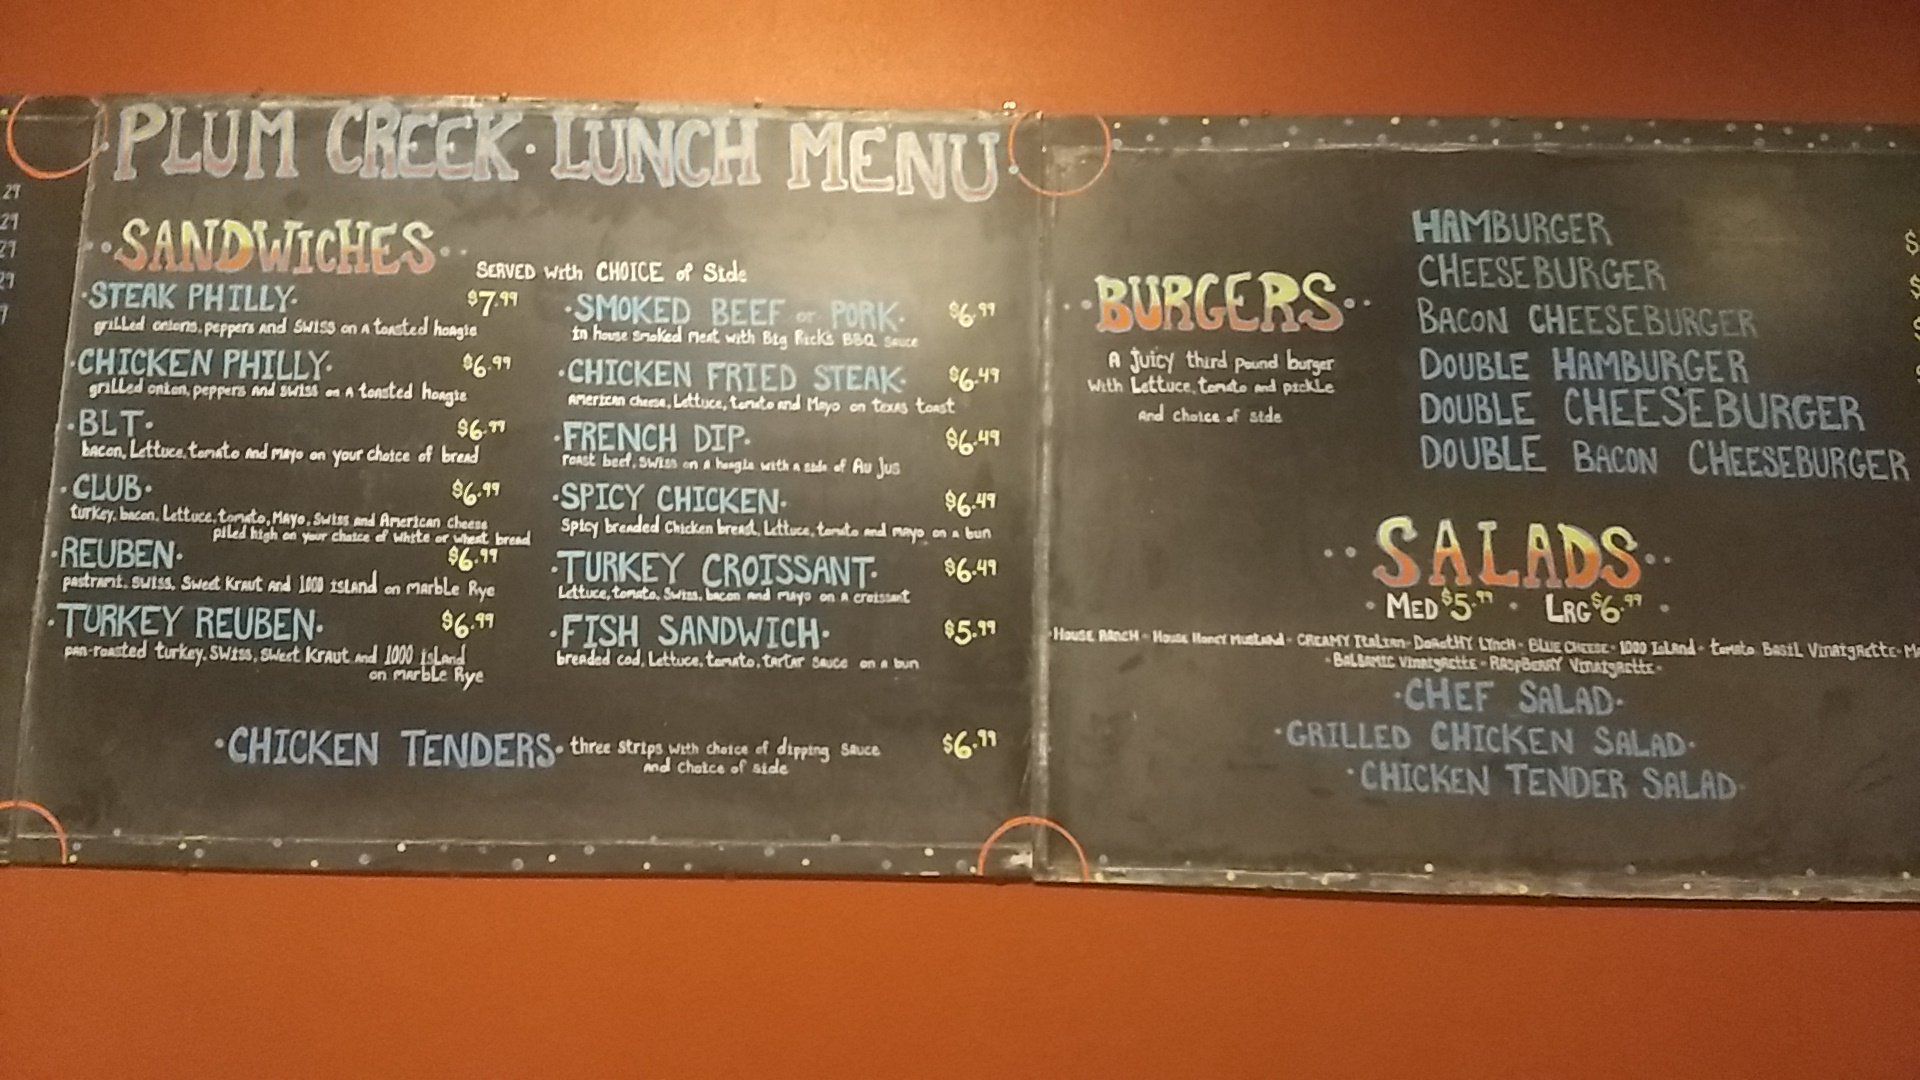 29
29
29
29
PLUM CREEK · LUNCH MENU
··SANDWICHES··
SERVED with CHOICE of Side
·STEAK PHILLY· $7.99
grilled onions, peppers and SWISS on a toasted hoagie
·CHICKEN PHILLY· $6.99
grilled onion, peppers and swiss on a toasted hoagie
·BLT· $6.99
bacon, Lettuce, tomato and mayo on your choice of bread
·CLUB· $6.99
turkey, bacon, Lettuce, tomato, Mayo, Swiss and American cheese
piled high on your choice of white or wheat bread
·REUBEN· $6.99
pastrami, swiss, Sweet Kraut and 1000 island on marble Rye
·TURKEY REUBEN· $6.99
pan-roasted turkey, Swiss, sweet Kraut and 1000 island
on marble Rye
·SMOKED BEEF or PORK· $6.99
In house smoked meat with Big Rick's BBQ sauce
·CHICKEN FRIED STEAK· $6.49
American cheese, Lettuce, tomato and Mayo on texas toast
·FRENCH DIP· $6.49
roast beef, swiss on a hoagie with a side of Au Jus
·SPICY CHICKEN· $6.49
Spicy breaded Chicken breast, Lettuce, tomato and mayo on a bun
·TURKEY CROISSANT· $6.49
Lettuce, tomato, Swiss, bacon and mayo on a croissant
·FISH SANDWICH· $5.99
breaded cod, Lettuce, tomato, tartar sauce on a bun
·CHICKEN TENDERS· three strips with choice of dipping sauce $6.99
and choice of side
··BURGERS··
A juicy third pound burger
with Lettuce, tomato and pickle
And choice of side
HAMBURGER $
CHEESEBURGER $
BACON CHEESEBURGER
DOUBLE HAMBURGER
DOUBLE CHEESEBURGER
DOUBLE BACON CHEESEBURGER
··SALADS··
· MED $5.99 · LRG $6.99 ·
·House RANCH · House Honey Mustard · CREAMY ITALIAN · DOROTHY LYNCH · BLUE CHEESE · 1000 Island · tomato Basil Vinaigrette ·
·BALSAMIC Vinaigrette · RASPBERRY Vinaigrette·
·CHEF SALAD·
·GRILLED CHICKEN SALAD·
·CHICKEN TENDER SALAD·